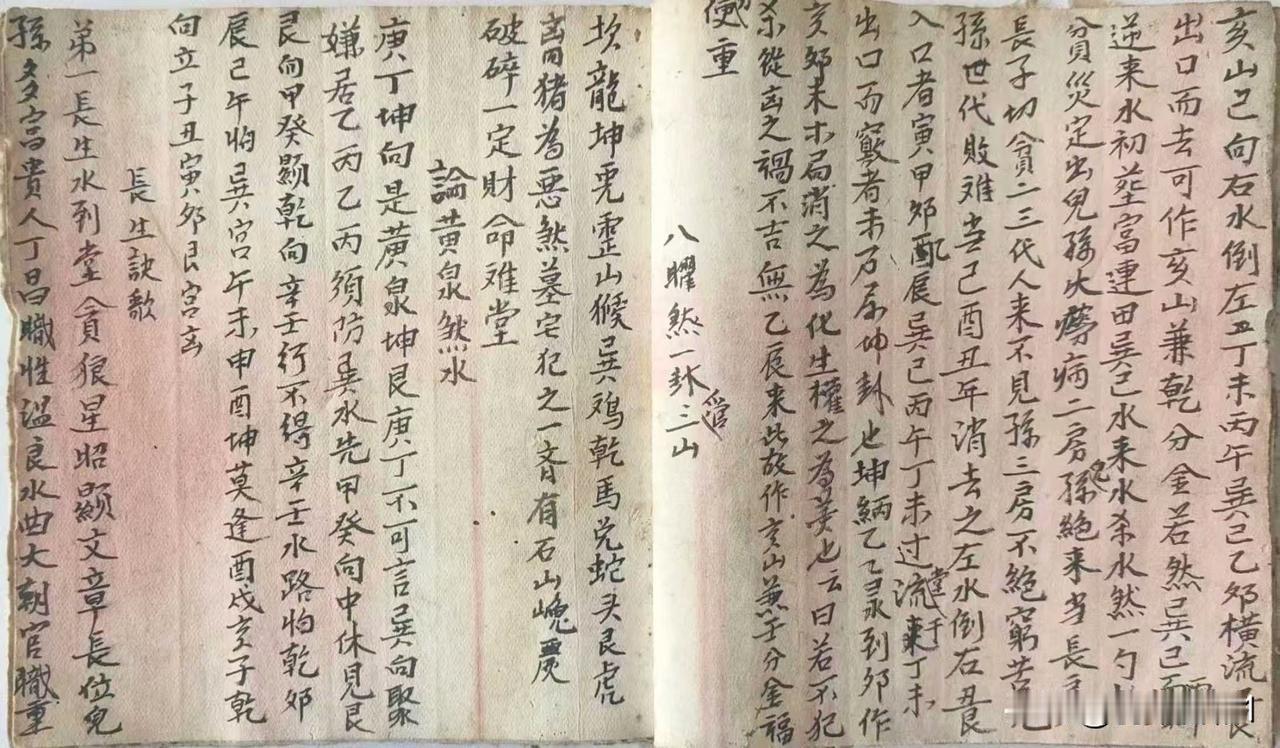 亥山巳向右水倒左丑丁未丙午巽巳乙夘橫流
出口而去可作亥山兼乾分金若然巽巳丙
逆来水初塟富連田巽巳水来水杀水然一勺
貧災定出兒孫大癆病二房孫絕来当長房
長子切貧二三代人来不見孫三房不絕窮苦
孫世代敗难当巳酉丑年消去之左水倒右丑艮
入口者寅甲夘配辰巽巳丙午丁未过堂流于丁未
出口而竅者未乃属坤卦也坤納乙水到夘作
亥夘未木局消之為化生權之為美也云曰若不犯
杀從凶之禍不吉無乙辰来此故作亥山兼壬分金福
便重
八曜煞一卦管三山
坎龍坤兎震山猴巽鸡乾馬兌蛇头艮虎
离猪為惡煞墓宅犯之一齐有石山巉嚴
破碎一定財命难堂
論黄泉煞水
庚丁坤向是黄泉坤艮庚丁不可言巽向聚
嫌居乙丙乙丙須防巽水先甲癸向中休見艮
艮向甲癸顯乾向辛壬行不得辛壬水路怕乾夘
辰巳午怕巽宮午未申酉坤莫逢酉戌亥子乾
向立子丑寅夘艮宮凶
長生訣歌
苐一長生水到堂貪狼星昭顯文章長位兒
孫多富貴人丁昌職性温良水曲大朝官職重